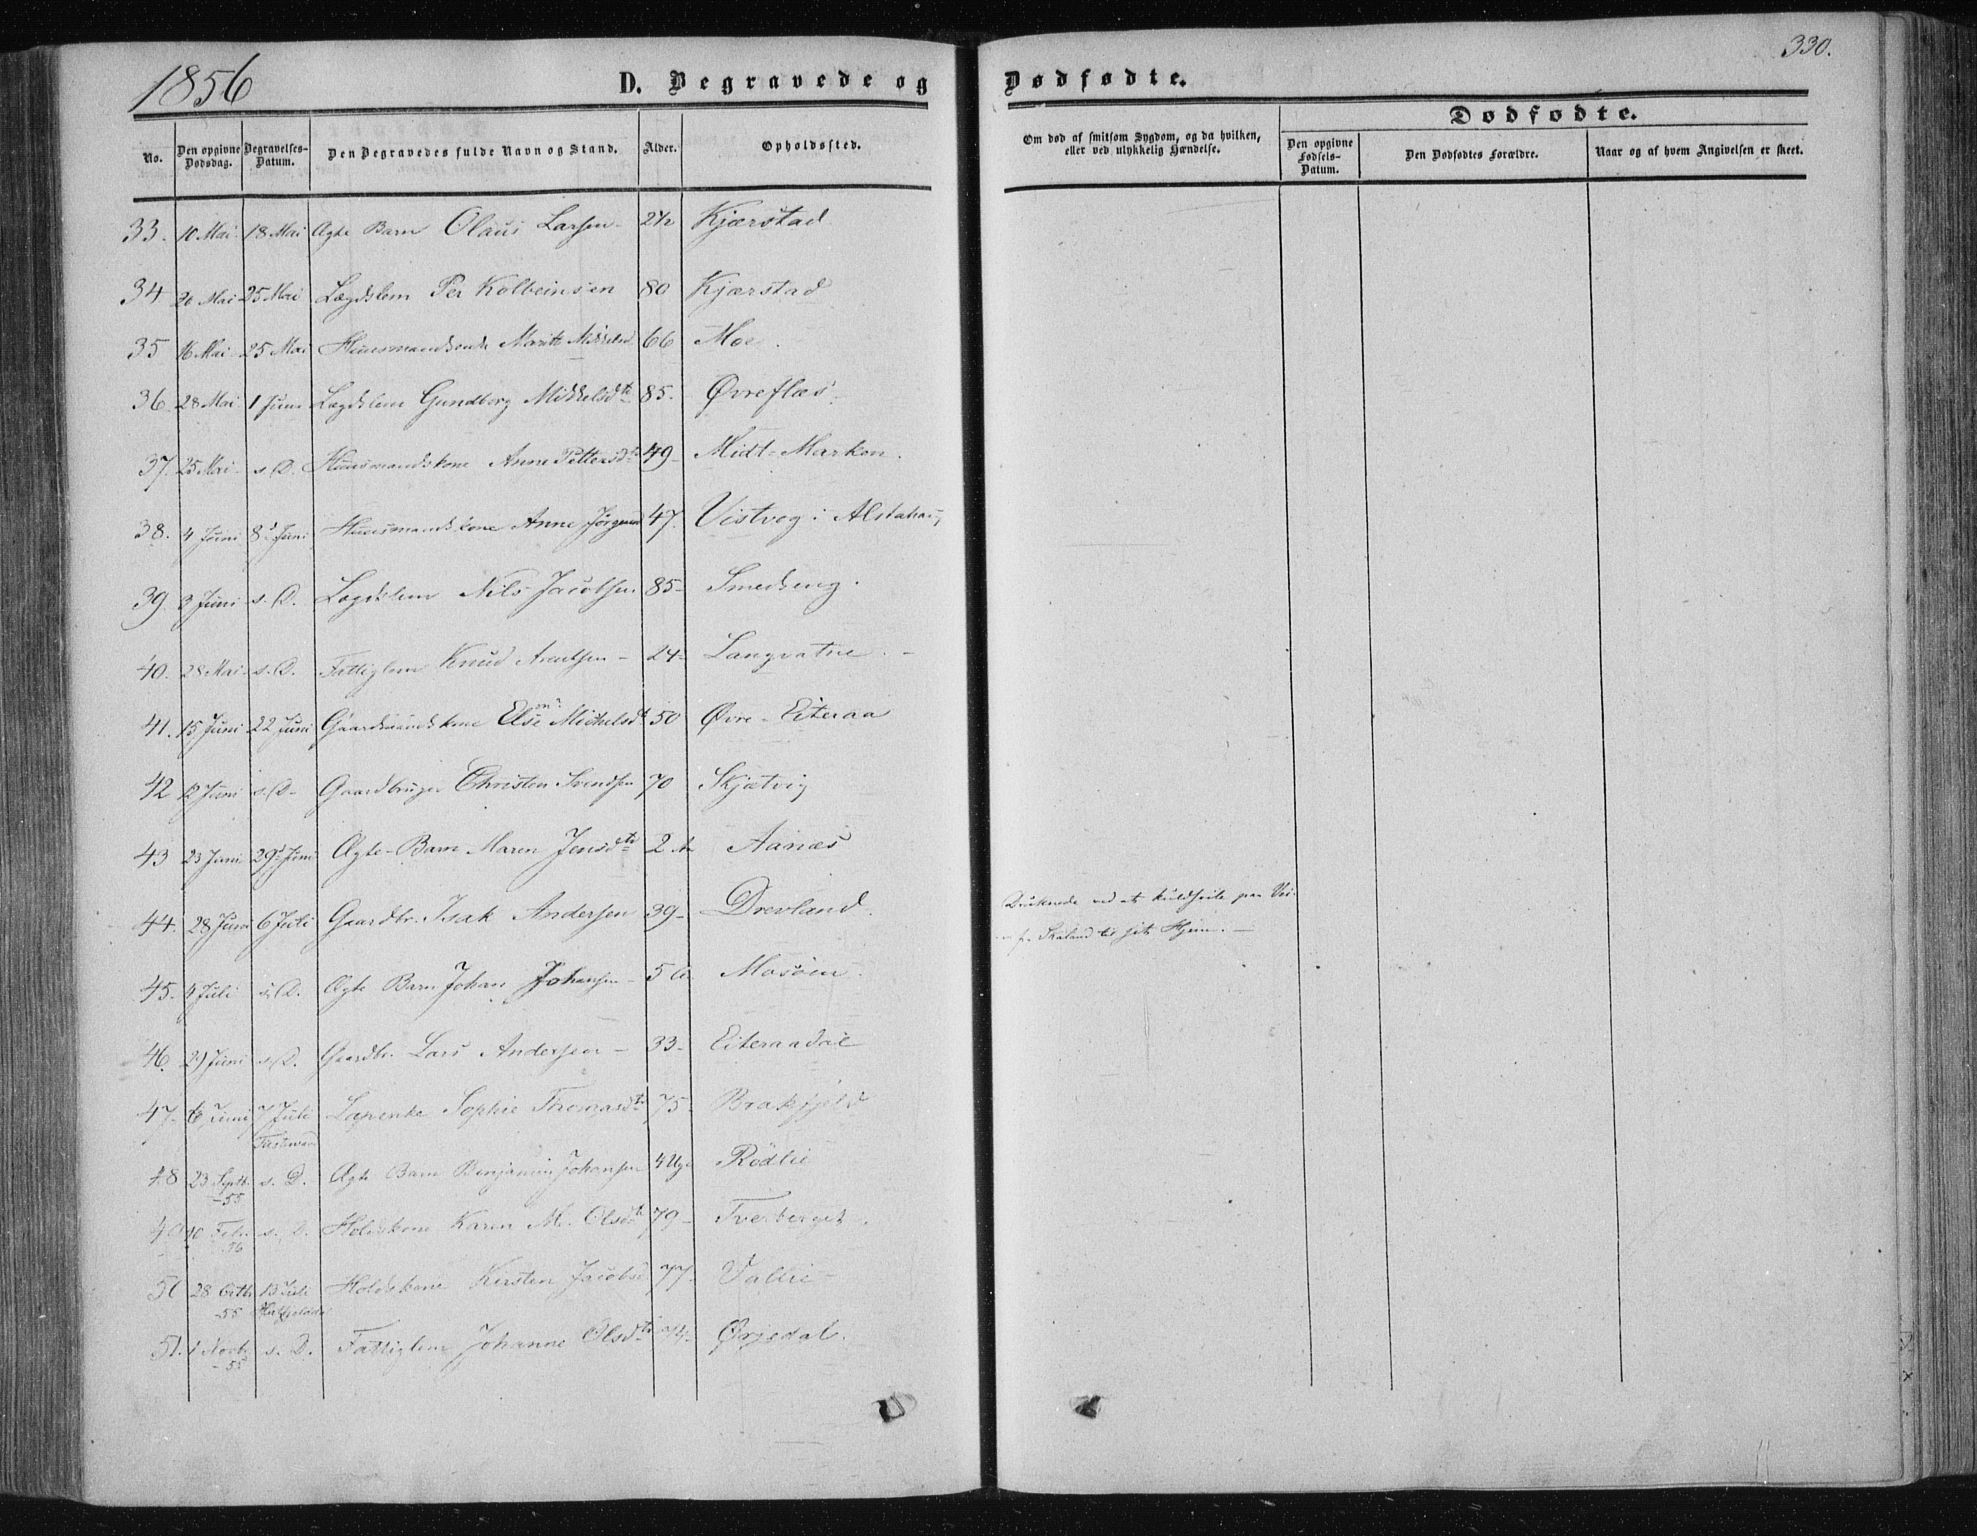 1856
D. Begravede og Dødfødte.
330.
No.
Den opgivne Dødsdag.
Begravelses-Datum.
Den Begravedes fulde Navn og Stand.
Alder.
Opholdssted.
Om død af smitsom Sygdom, og da hvilken, eller ved ulykkelig Hændelse.
Dødfødte.
Den opgivne Fødsels-Datum.
Den Dødfødtes Forældre.
Naar og af hvem Angivelsen er skeet.
33. 10 Mai 18 Mai Ægte Barn Olaus Larsen 2½ Kjærstad
34 20 Mai 25 Mai Lægdslem Per Kolbeinsen 80 Kjærstad
35 16 Mai 25 Mai Marit 66 Moe.
36. 28 Mai 1 Juni Lægdslem Gundborg Mikkelsdtr 85. Øvreflæs
37. 25 Mai s. D. Huusmandskone Anne Pettersdtr 49 Midt-Marken.
38. 4 Juni 8 Juni Huusmandskone Anne 47. Vistvog i Alstahaug
39. 3 Juni s. D. Lægdslem Nils Jacobsen 85 Smedseng.
40. 28 Mai s. D. Fattiglem Knud Arentsen - 24 Langvatne. -
41. 15 Juni 22 Juni Gaardmandskone Else Mickelsdt 50 Øvre-Eiteraa
42 12 Juni s. D. Gaardbruger Christen Svendsen 70 Skjætvig
43 23 Juni 29 Juni Ægte-Barn Maren Jensdtr 2 Aanæs
44. 28 Juni 6 Juli Gaardbr. Isak Andersen 39 Drevland. Druknede ved at kuldseile paa Vei-
fr Skaland til sit Hjem. -
45. 4 Juli s. D. Ægte Barn Johan Johansen - 5 Mosøen.
46. 29 Juni s. D. Gaardbr. Lars Andersen - 33 Eiteraadal
47. 6 Juni 7 Juli Lapenke Sophie Thomasdtr 75 Brakfjeld
48 23 Septb. -55 s. D. Ægte Barn Benjamin Johansen 4 Uger Rødlie
10 Febr. 56 s. D. Holdskone Karen M. Olsdtr 79 Tverberget.
50 28 Octbr -55 13 Juli Hatfjelddal Holdskone Kirsten Jacobsd 77 Vallie
51. 1 Novb. -55 s. D. Fattiglem Johanne Olsdtr 74 Ørjedal.